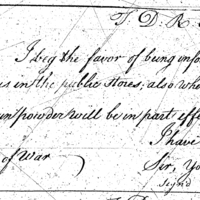 T. D. R.
I beg the favor of being info
us in the public stores; also whe
un powder will be in part eff
I have
of War
Sir, Yo
signd